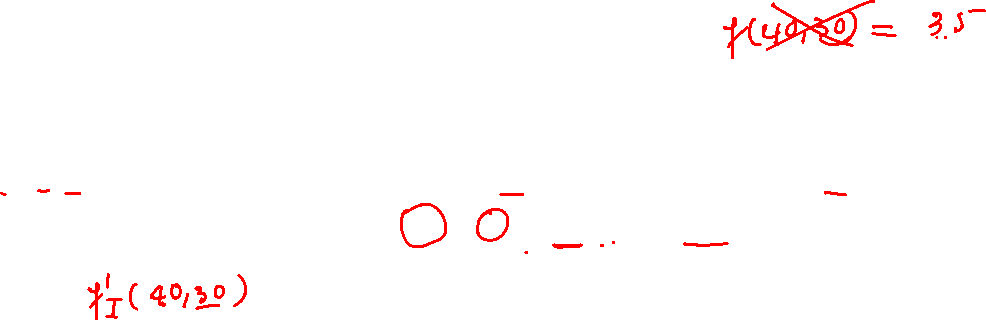 f(40,30) = 3.5
f'I(40,30)